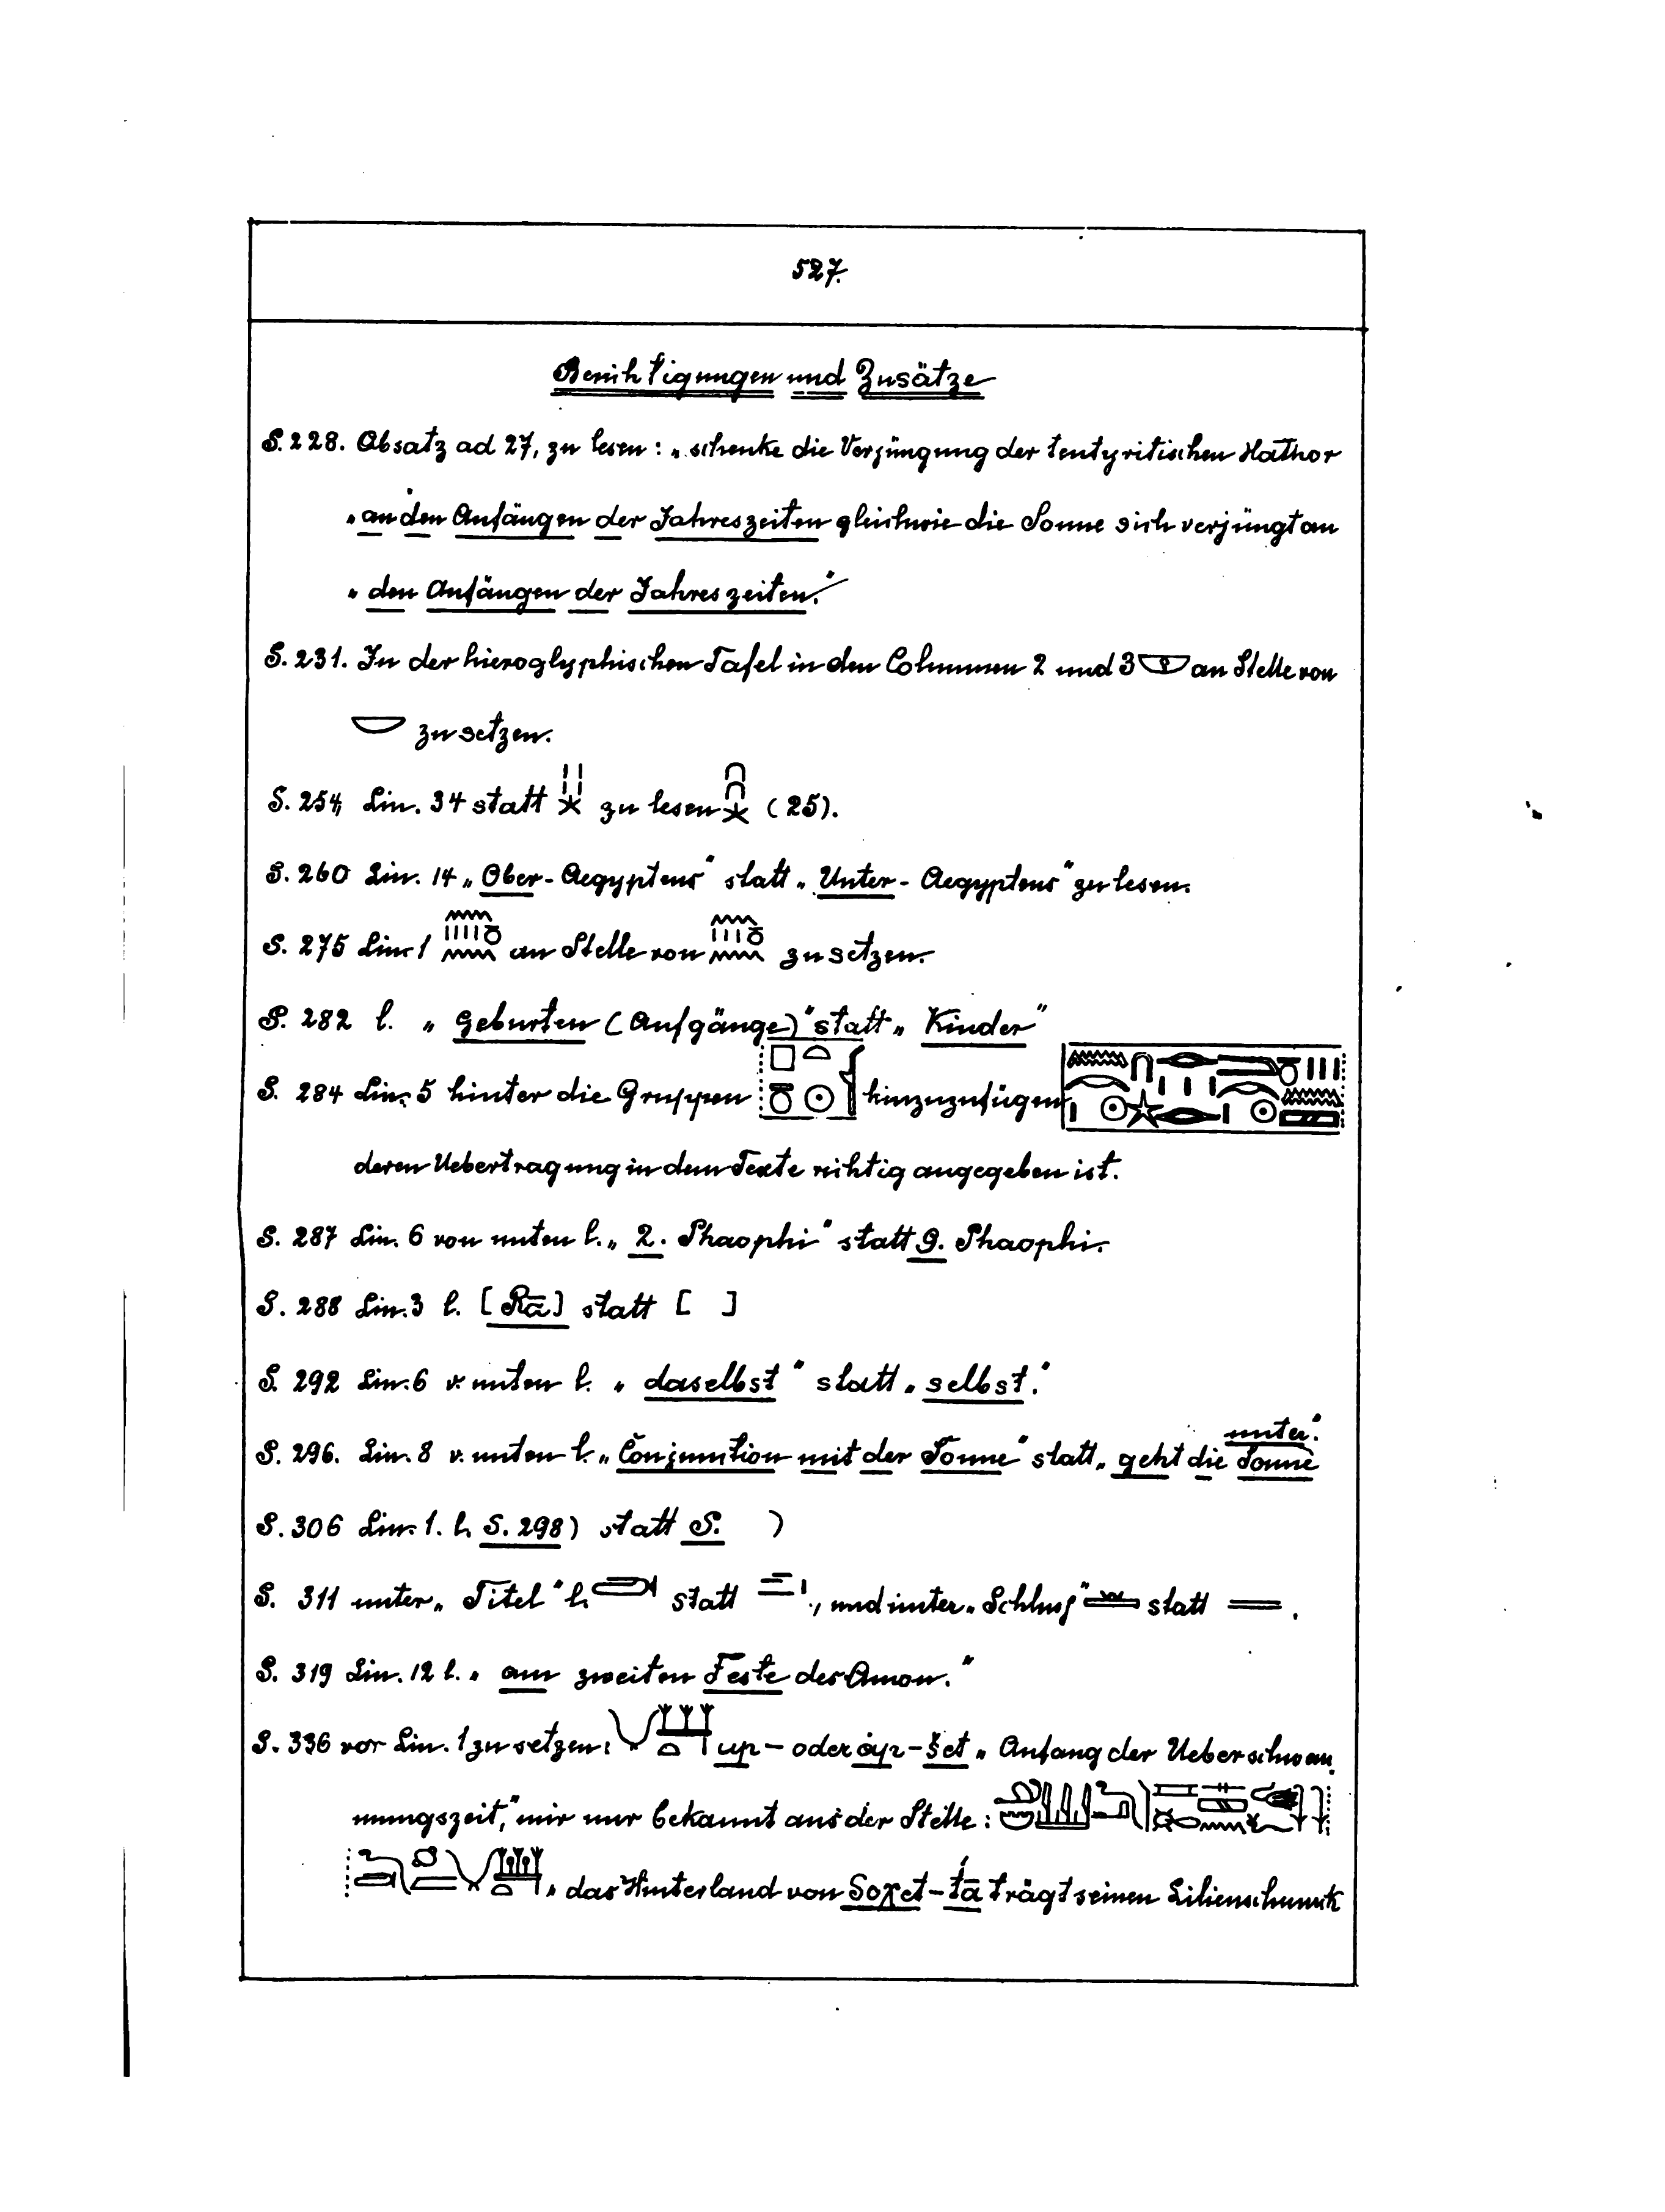 527.
Berichtigungen und Zusätze
S. 228. Absatz ad 27, zu lesen: „schenke die Verjüngung der tentyritischen Hathor
„an den Anfängen der Jahreszeiten gleichwie die Sonne sich verjüngt an
„den Anfängen der Jahreszeiten."
S. 231. In der hieroglyphischen Tafel in den Columnen 2 und 3 an Stelle von
zu setzen.
S. 254, Lin. 34 statt zu lesen (25).
S. 260 Lin. 14 „Ober-Aegyptens" statt „Unter-Aegyptens" zu lesen.
S. 275 Lin. 1 an Stelle von zu setzen.
S. 282 l. „Geburten (Aufgänge)" statt „Kinder"
S. 284 Lin. 5 hinter die Gruppen hinzuzufügen
deren Uebertragung in dem Texte richtig angegeben ist.
S. 287 Lin. 6 von unten l. „2. Phaophi" statt 9. Phaophi.
S. 288 Lin. 3 l. [Rā] statt [ ]
S. 292 Lin. 6 v. unten l. „daselbst" statt „selbst."
S. 296. Lin. 8 v. unten l. „Conjunction mit der Sonne" statt „geht die Sonne unter."
S. 306 Lin. 1. l. S. 298) statt S. )
S. 311 unter „Titel" l. statt , und unter „Schluß" statt .
S. 319 Lin. 12 l. „am zweiten Feste des Amon."
S. 336 vor Lin. 1 zu setzen: up- oder -šet „Anfang der Ueberschwem
mungszeit," mir nur bekannt aus der Stelle:
„das Hinterland von Soχet-tā trägt seinen Lilienschmuck